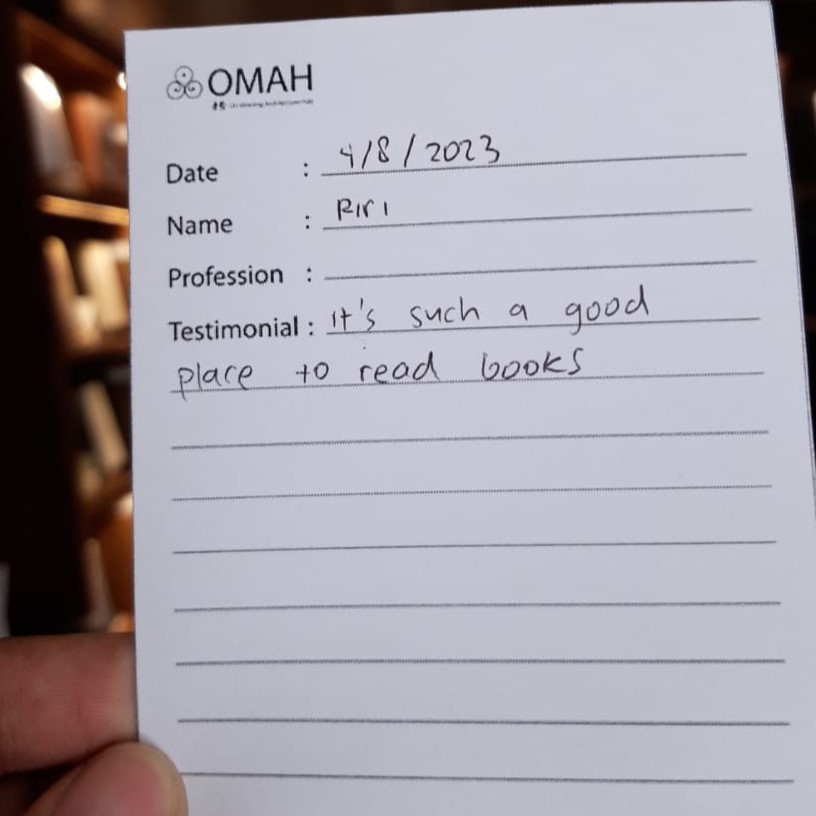 OMAH
Date : 4/8/2023
Name : Riri
Profession :
Testimonial : it's such a good
place to read books